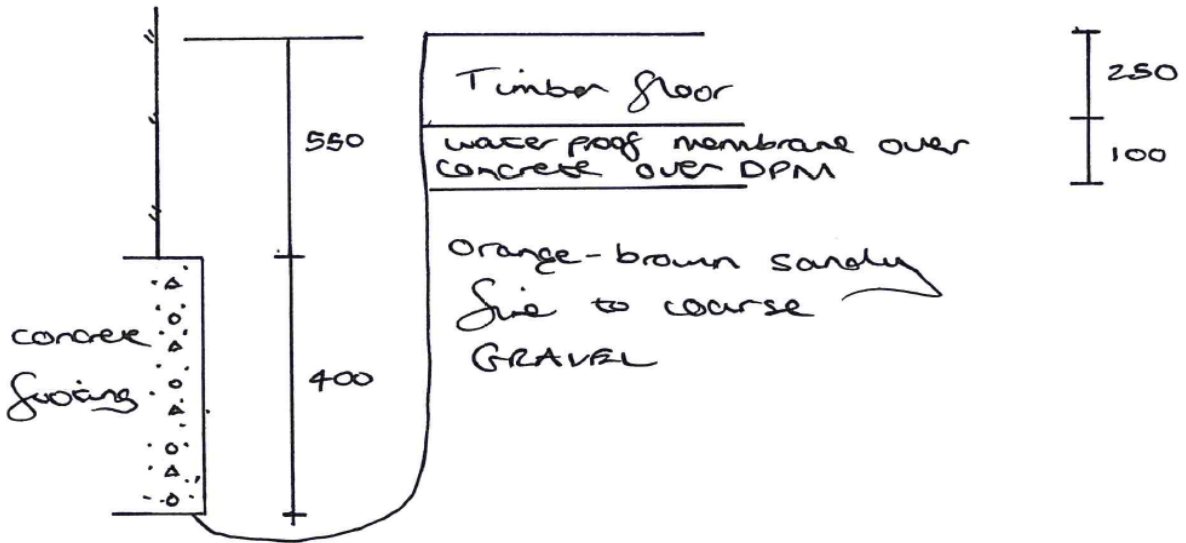 Timber floor
250
550
waterproof membrane over
concrete over DPM
100
orange-brown sandy
fine to coarse
GRAVEL
concrete
footing
400